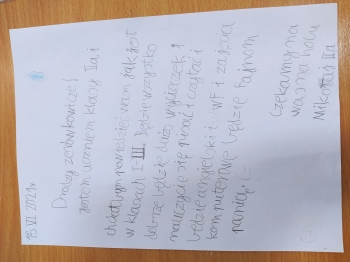 15 VI 2021r
Drodzy zerówkowicze!
Jestem uczniem klasy IIa i
chciałbym powiedzieć wam jak jest
w klasach I-III. Będzie wszystko
dobrze będzie dużo wycieczek i
nauczycie się pisać i czytać i
będzie angielski i WF i zajęcia
komputerowe będzie fajnom
panią. (-:
Czekamy na
was na holu
Mikołaj IIa